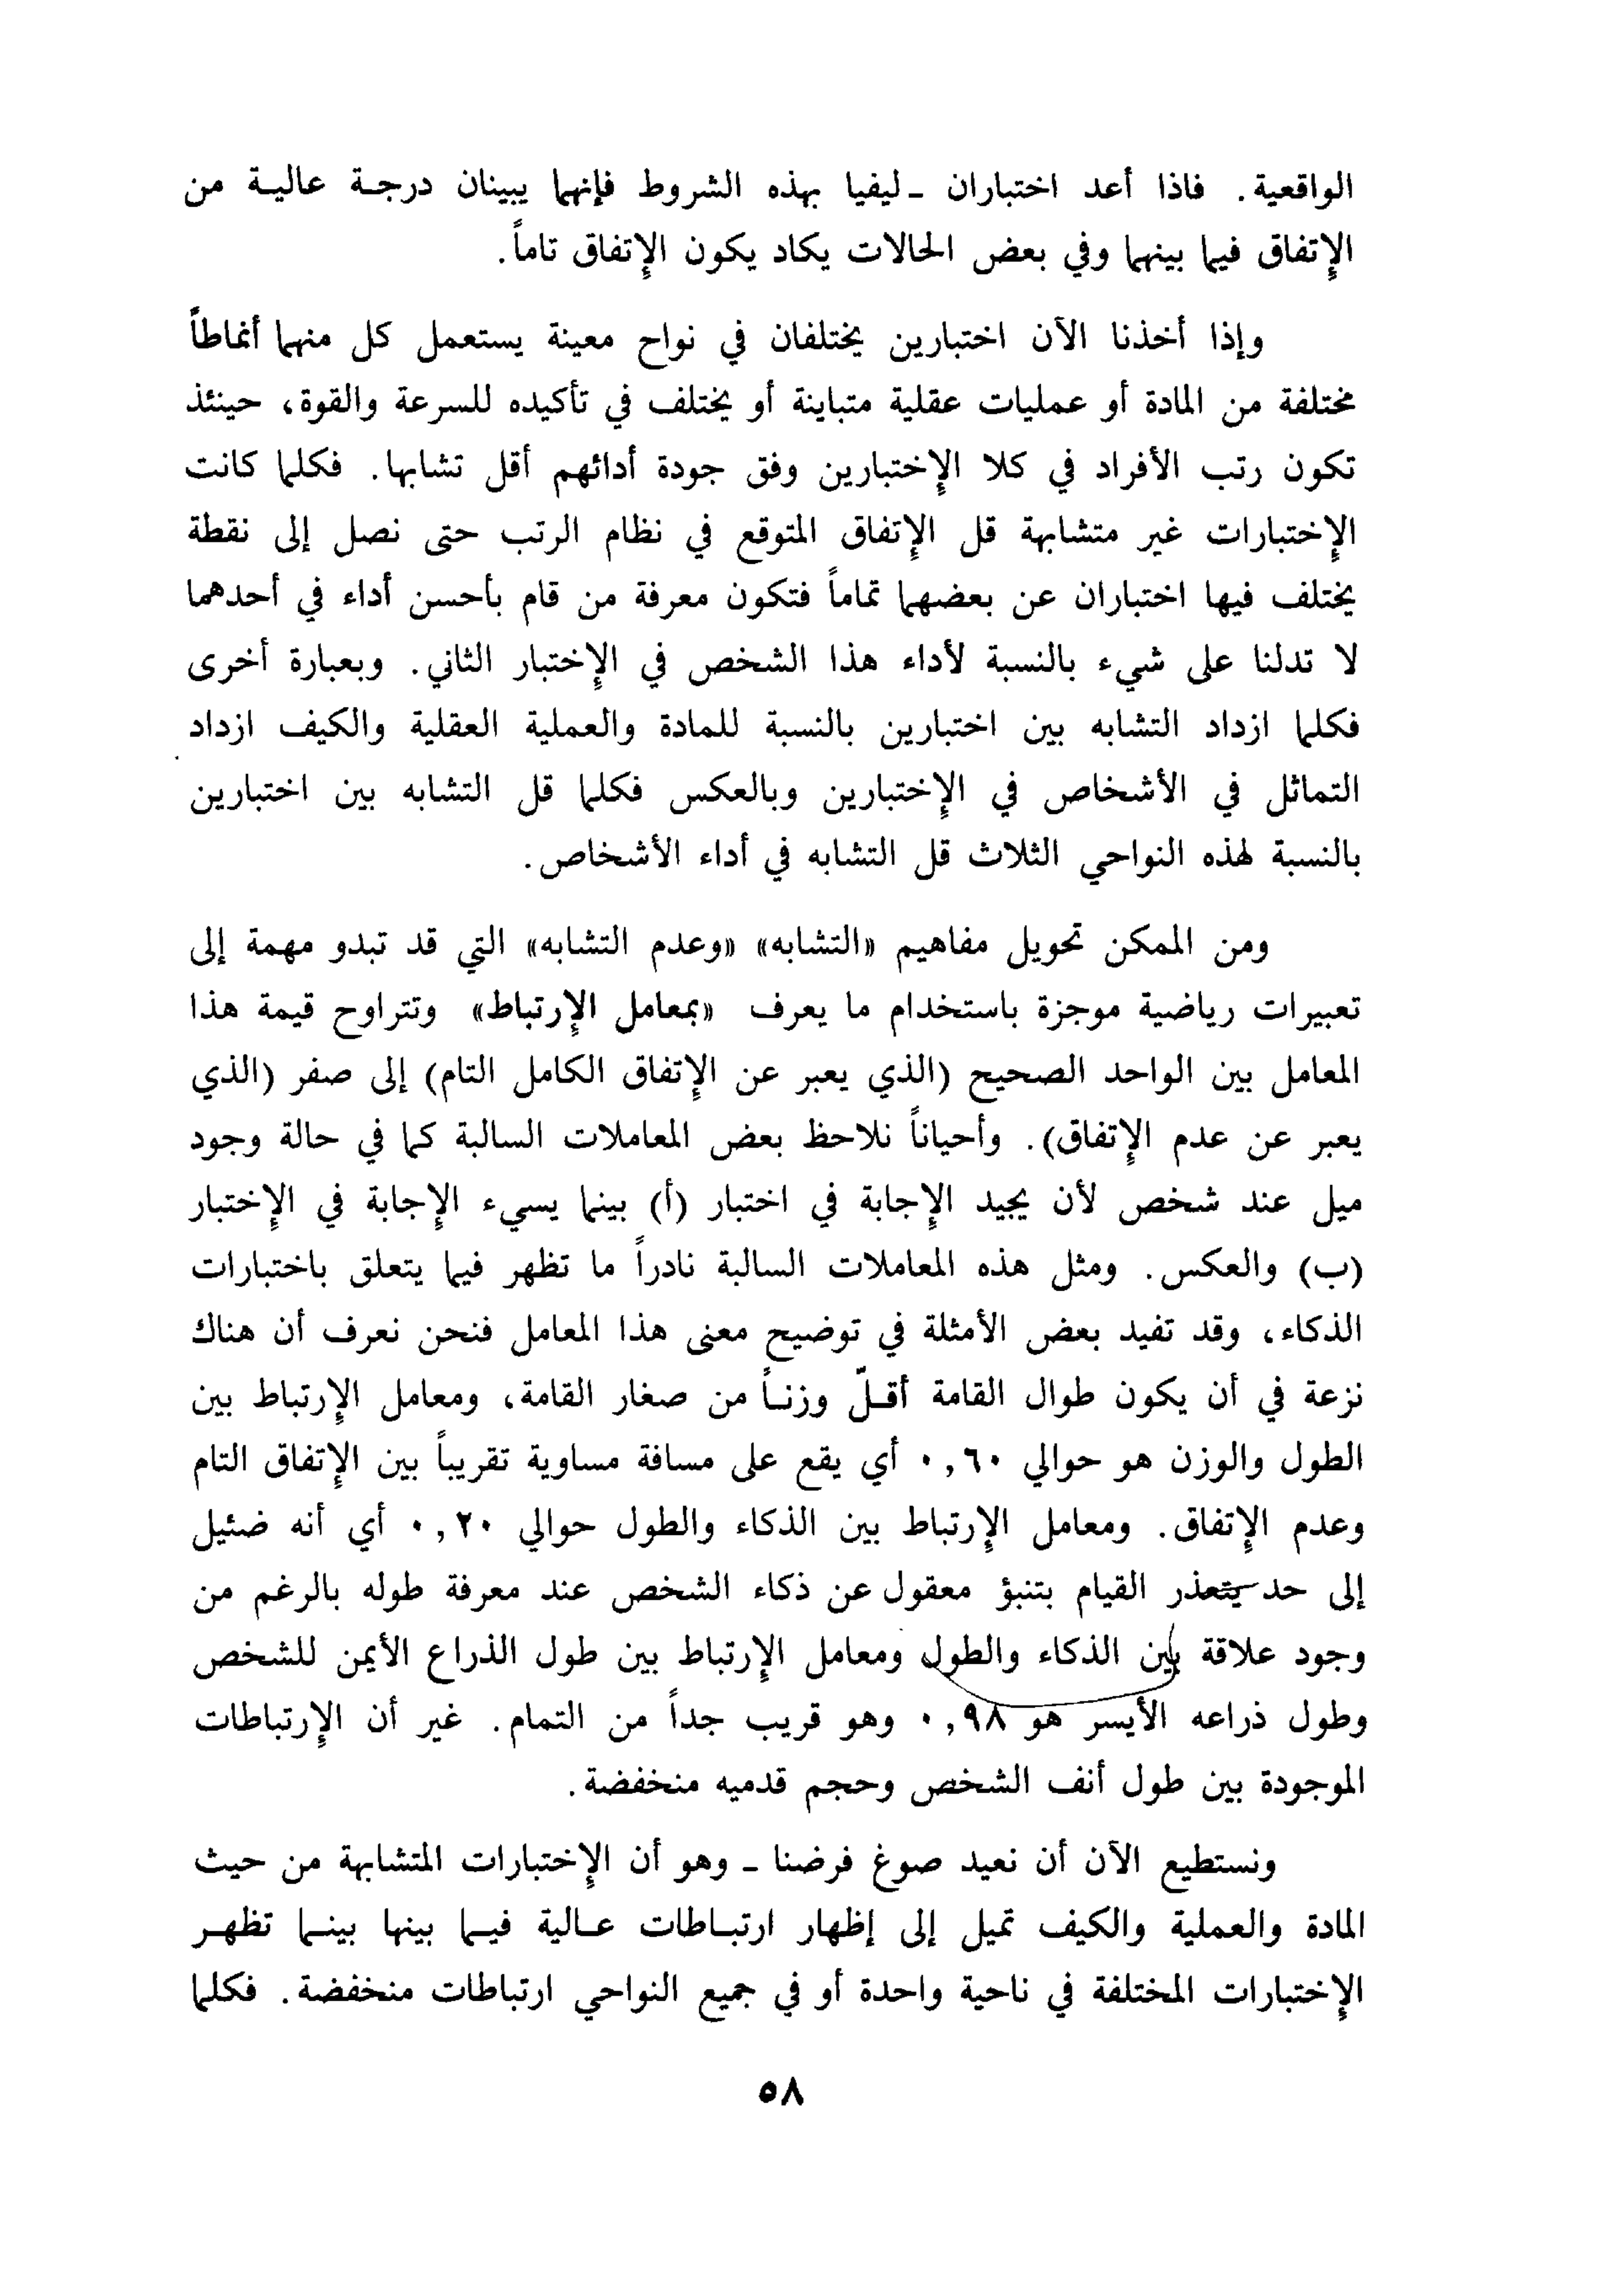 الواقعية. فاذا أعد اختباران ـ ليفيا بهذه الشروط فإنهما يبينان درجة عالية من
الإتفاق فيما بينهما وفي بعض الحالات يكاد يكون الإتفاق تاماً.
وإذا أخذنا الآن اختبارين يختلفان في نواح معينة يستعمل كل منهما أنماطاً
مختلفة من المادة أو عمليات عقلية متباينة أو يختلف في تأكيده للسرعة والقوة، حينئذ
تكون رتب الأفراد في كلا الإختبارين وفق جودة أدائهم أقل تشابها. فكلما كانت
الإختبارات غير متشابهة قل الإتفاق المتوقع في نظام الرتب حتى نصل إلى نقطة
يختلف فيها اختباران عن بعضهما تماماً فتكون معرفة من قام بأحسن أداء في أحدهما
لا تدلنا على شيء بالنسبة لأداء هذا الشخص في الإختبار الثاني. وبعبارة أخرى
فكلما ازداد التشابه بين اختبارين بالنسبة للمادة والعملية العقلية والكيف ازداد
التماثل في الأشخاص في الإختبارين وبالعكس فكلما قل التشابه بين اختبارين
بالنسبة لهذه النواحي الثلاث قل التشابه في أداء الأشخاص.
ومن الممكن تحويل مفاهيم «التشابه» «وعدم التشابه» التي قد تبدو مهمة إلى
تعبيرات رياضية موجزة باستخدام ما يعرف «بمعامل الإرتباط» وتتراوح قيمة هذا
المعامل بين الواحد الصحيح (الذي يعبر عن الإتفاق الكامل التام) إلى صفر (الذي
يعبر عن عدم الإتفاق). وأحياناً نلاحظ بعض المعاملات السالبة كما في حالة وجود
ميل عند شخص لأن يجيد الإجابة في اختبار (أ) بينما يسيء الإجابة في الإختبار
(ب) والعكس. ومثل هذه المعاملات السالبة نادراً ما تظهر فيما يتعلق باختبارات
الذكاء، وقد تفيد بعض الأمثلة في توضيح معنى هذا المعامل فنحن نعرف أن هناك
نزعة في أن يكون طوال القامة أقـلّ وزنـاً من صغار القامة، ومعامل الإرتباط بين
الطول والوزن هو حوالي ٠,٦٠ أي يقع على مسافة مساوية تقريباً بين الإتفاق التام
وعدم الإتفاق. ومعامل الإرتباط بين الذكاء والطول حوالي ٠,٢٠ أي أنه ضئيل
إلى حد يتعذر القيام بتنبؤ معقول عن ذكاء الشخص عند معرفة طوله بالرغم من
وجود علاقة بين الذكاء والطول ومعامل الإرتباط بين طول الذراع الأيمن للشخص
وطول ذراعه الأيسر هو ٠,٩٨ وهو قريب جداً من التمام. غير أن الإرتباطات
الموجودة بين طول أنف الشخص وحجم قدميه منخفضة.
ونستطيع الآن أن نعيد صوغ فرضنا ـ وهو أن الإختبارات المتشابهة من حيث
المادة والعملية والكيف تميل إلى إظهار ارتبـاطات عـالية فيـما بينها بينـما تظهـر
الإختبارات المختلفة في ناحية واحدة أو في جميع النواحي ارتباطات منخفضة. فكلما
٥٨